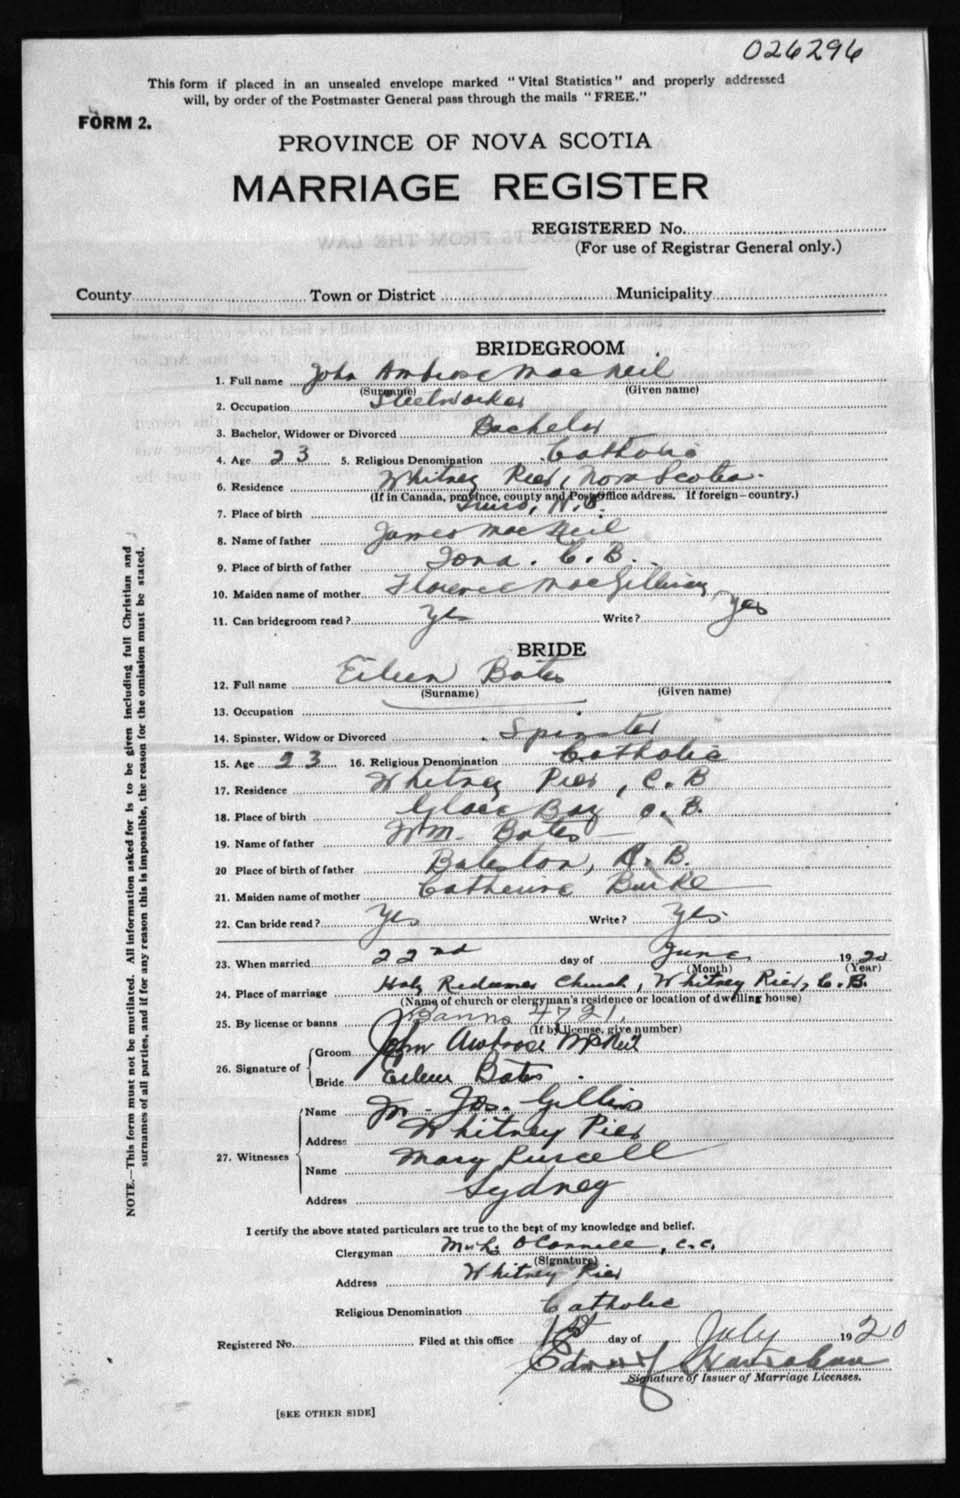 026296
This form if placed in an unsealed envelope marked "Vital Statistics" and properly addressed
will, by order of the Postmaster General pass through the mails "FREE."
FORM 2.
PROVINCE OF NOVA SCOTIA
MARRIAGE REGISTER
REGISTERED No.
(For use of Registrar General only.)
County Town or District Municipality
BRIDEGROOM
1. Full name John Ambrose MacNeil
(Surname) (Given name)
2. Occupation Steelworker
3. Bachelor, Widower or Divorced Bachelor
4. Age 23 5. Religious Denomination Catholic
6. Residence Whitney Pier, Nova Scotia
(If in Canada, province, county and Post office address. If foreign—country.)
7. Place of birth Truro, N.S.
8. Name of father James MacNeil
9. Place of birth of father Iona. C.B.
10. Maiden name of mother Florence MacGillivray
11. Can bridegroom read? Yes Write? Yes
BRIDE
12. Full name Eileen Bates
(Surname) (Given name)
13. Occupation
14. Spinster, Widow or Divorced Spinster
15. Age 23 16. Religious Denomination Catholic
17. Residence Whitney Pier, C.B
18. Place of birth Glace Bay C.B.
19. Name of father Wm. Bates
20 Place of birth of father Bateston, C.B.
21. Maiden name of mother Catherine Burke
22. Can bride read? Yes Write? Yes
23. When married 22nd day of June 1920
(Month) (Year)
24. Place of marriage Holy Redeemer Church, Whitney Pier, C.B.
(Name of church or clergyman's residence or location of dwelling house)
25. By license or banns Banns 4721.
(If by license, give number)
26. Signature of Groom John Ambrose McNeil
Bride Eileen Bates
27. Witnesses Name Jos. Gillis
Address Whitney Pier
Name Mary Purcell
Address Sydney
I certify the above stated particulars are true to the best of my knowledge and belief.
Clergyman O'Connell, C.C.
(Signature)
Address Whitney Pier
Religious Denomination Catholic
Registered No. Filed at this office 1st day of July 1920
Edward
Signature of Issuer of Marriage Licenses.
[SEE OTHER SIDE]
NOTE.—This form must not be mutilated. All information asked for is to be given including full Christian and
surnames of all parties, and if for any reason this is impossible, the reason for the omission must be stated.